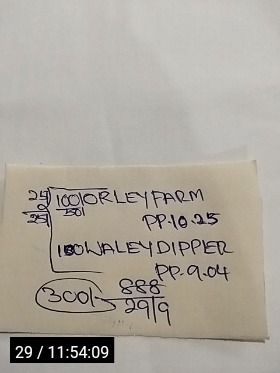 25 100/ ORLEY FARM
0 50/
25/ PP.10.25
100 WALEY DIPPER
PP.9.04
300/- 888
29/9
29 / 11:54:09